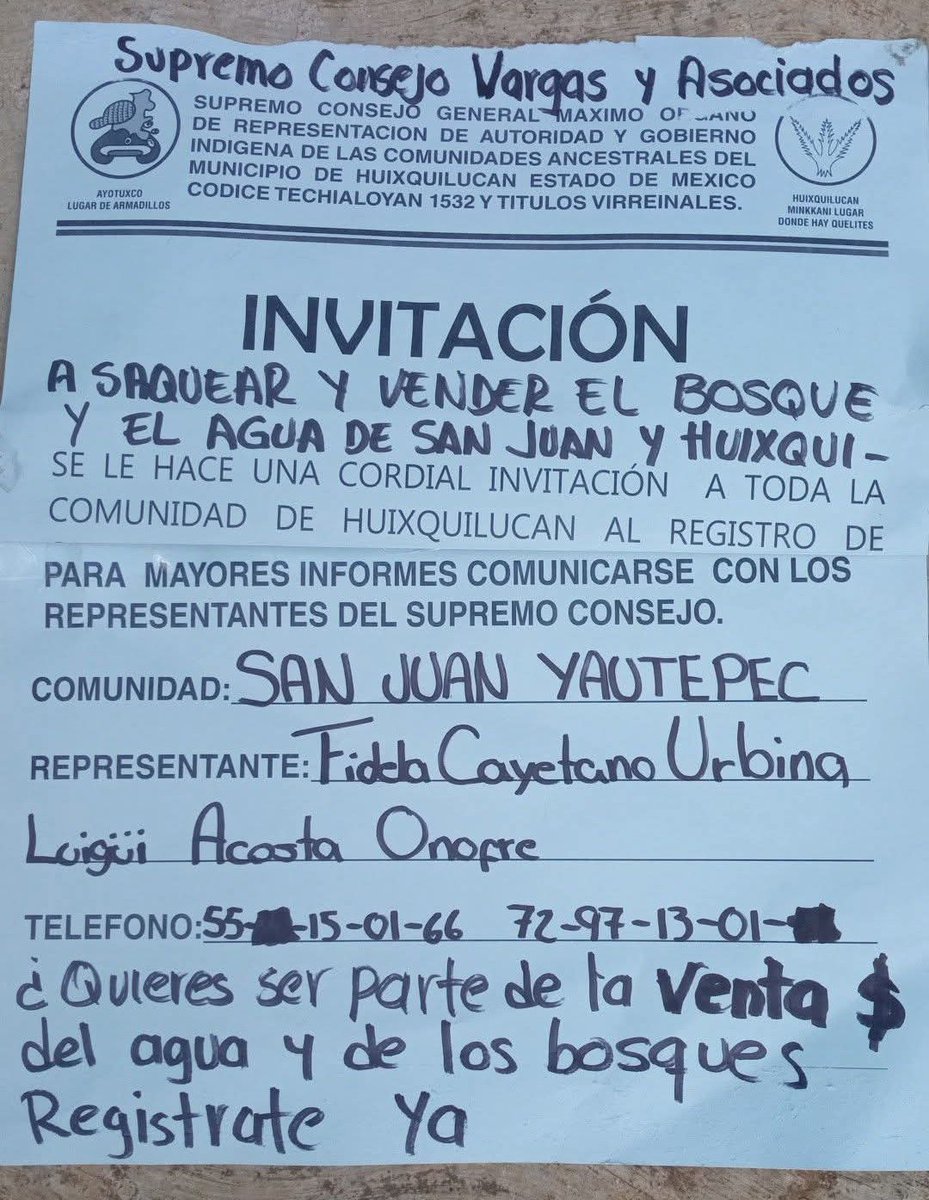 Supremo Consejo Vargas y Asociados
SUPREMO CONSEJO GENERAL MAXIMO OR ANO
DE REPRESENTACION DE AUTORIDAD Y GOBIERNO
INDIGENA DE LAS COMUNIDADES ANCESTRALES DEL
MUNICIPIO DE HUIXQUILUCAN ESTADO DE MEXICO
CODICE TECHIALOYAN 1532 Y TITULOS VIRREINALES.
AYOTUXCO
LUGAR DE ARMADILLOS
HUIXQUILUCAN
MINKKANI LUGAR
DONDE HAY QUELITES
INVITACIÓN
A SAQUEAR Y VENDER EL BOSQUE
Y EL AGUA DE SAN JUAN Y HUIXQUI-
SE LE HACE UNA CORDIAL INVITACIÓN A TODA LA
COMUNIDAD DE HUIXQUILUCAN AL REGISTRO DE
PARA MAYORES INFORMES COMUNICARSE CON LOS
REPRESENTANTES DEL SUPREMO CONSEJO.
COMUNIDAD: SAN JUAN YAUTEPEC
REPRESENTANTE: Fidda Cayetano Urbina
Luigüi Acosta Onofre
TELEFONO: 55- -15-01-66 72-97-13-01-
¿Quieres ser parte de la venta $
del agua y de los bosques
Registrate Ya